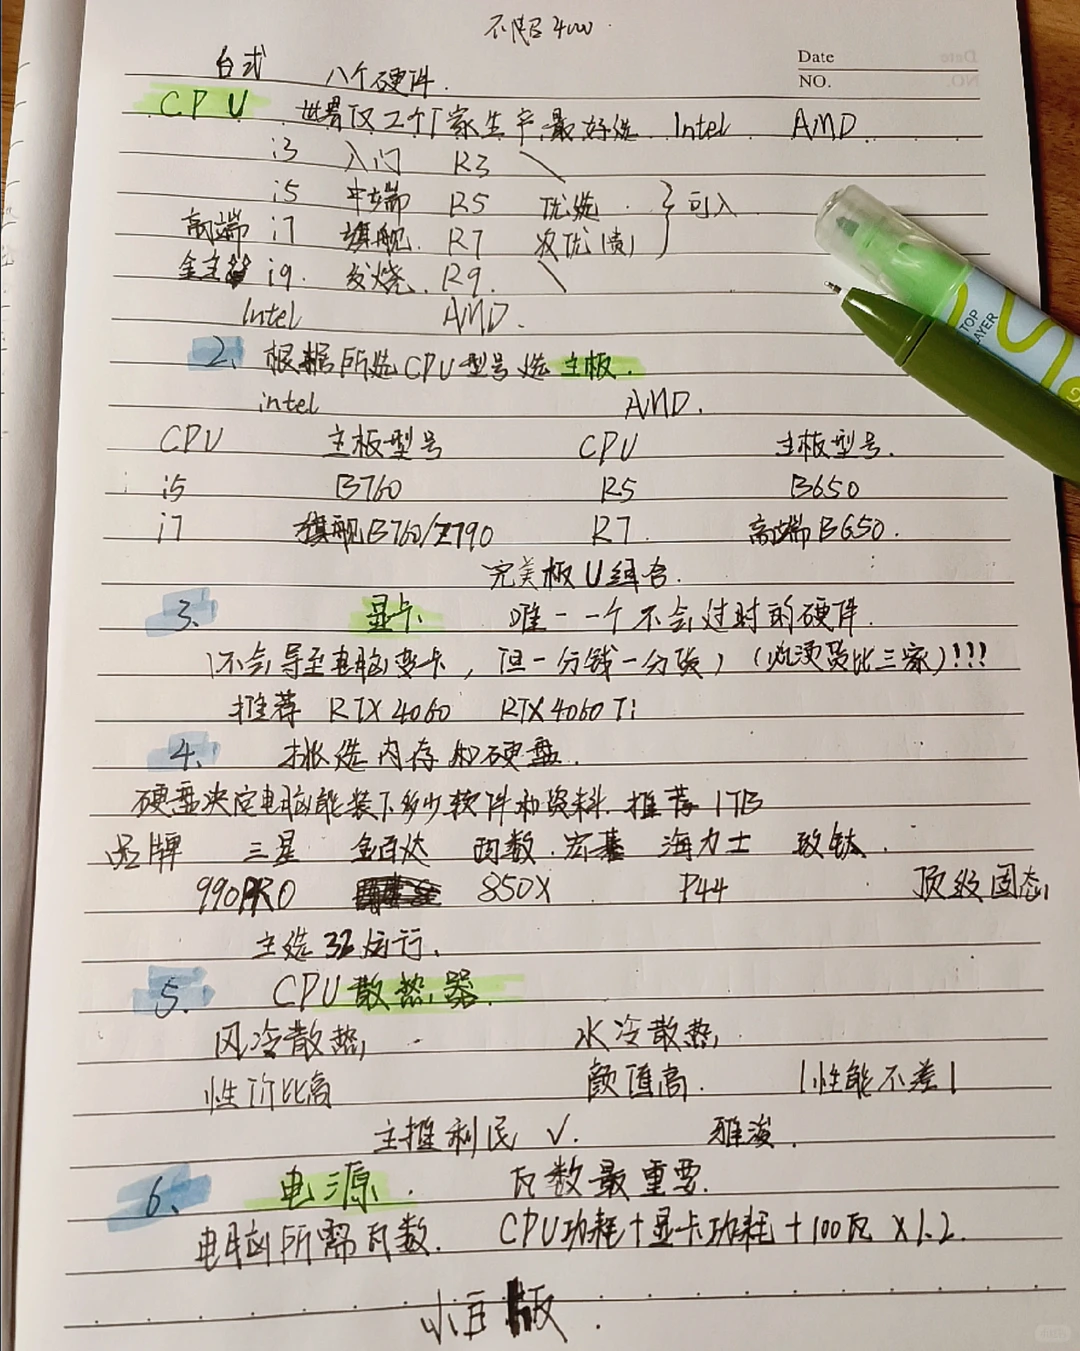 不超4000.
Date
NO.
台式 八个硬件.
CPU 世界仅2个厂家生产,最好选 Intel AMD.
i3 入门 R3 \
i5 中端 R5 优选. } 可入
高端 i7 旗舰. R7 次优(贵)
金主 i9. 发烧. R9. \
Intel AMD.
2、根据所选CPU型号选主板.
intel AMD.
CPU 主板型号 CPU 主板型号.
i5 B760 R5 B650
i7 旗舰B760/Z790 R7. 高端B650.
完美板U组合.
3、 显卡 唯一一个不会过时的硬件.
(不会导至电脑变卡,但一分钱一分货)(必须货比三家)!!!
推荐 RTX 4060 RTX 4060 Ti
4、 挑选内存和硬盘.
硬盘决定电脑能装下多少软件和资料.推荐1TB
品牌 三星 金百达 西数.宏碁 海力士 致钛.
990PRO 850X P44 顶级固态
主选32运行.
5、 CPU散热器.
风冷散热 水冷散热
性价比高 颜值高. (性能不差)
主推利民 √. 雅浚.
6、 电源. 瓦数最重要.
电脑所需瓦数. CPU功耗+显卡功耗+100瓦×1.2.
TOP LAYER